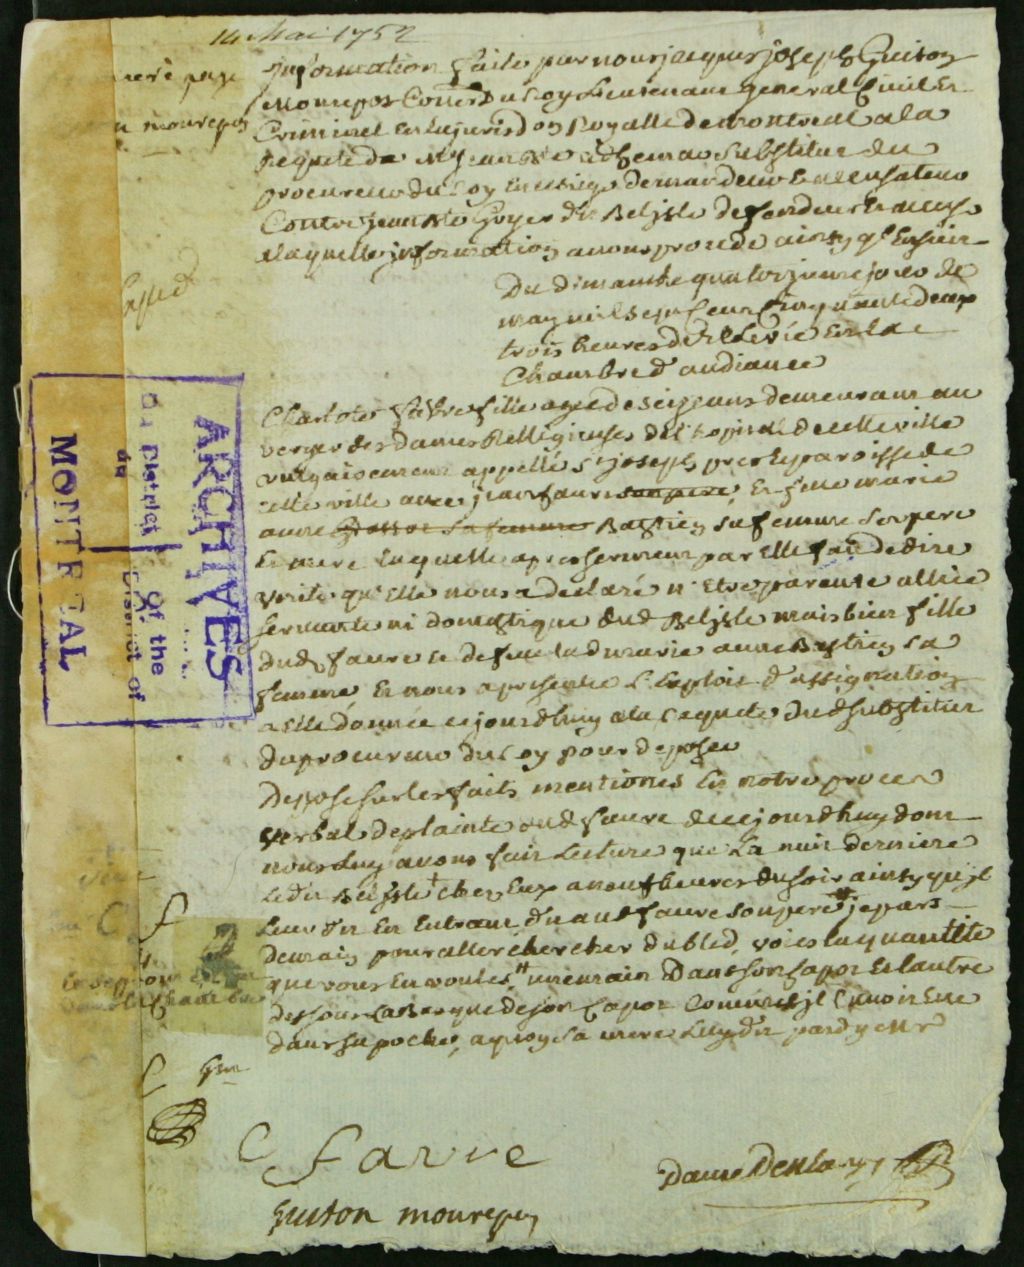 14 Mai 1752
Information faite par nous jacques joseph Guiton
Monrepos Coner du Roy Lieutenant general Civil Et
Criminel En la jurisdon Royalle de montreal a la
Requete de Me jean Bte adhemar substitut du
procureur du Roy En ce siege demandeur Et accusateur
Contre jean Bte Goyer dit Belisle deffendeur Et accusé
a laquelle information avons procedé ainsy ql Ensuit
Du dimanche quatorzieme jour de
may mil sept cent Cinquante deux
trois heures de Relevée En la
Chambre d'audiance
Charlote favre fille agée de seize ans demeurant au
verger des dames Religieuses de l'hopital de cette ville
vulgairement appellé St joseph pres la paroisse de
cette ville avec jean favre son pere Et feue marie
anne sa femme Bastien sa femme ses pere
Et mere laquelle apres serment par Elle fait de dire
verité qu'Elle nous a declaré n'Etre parente alliée
servante ni domestique dud Belisle mais bien fille
dud favre Et de feue lad marie anne Bastien sa
femme Et nous a presenté L'Exploit d'assignation
a Elle donnée ce jourdhuy a la Requete dud substitut
du procureur du Roy pour deposer
Depose sur les faits mentionés En notre procès
verbal de plainte dud favre de ce jourdhuy dont
nous luy avons fait Lecture que La nuit derniere
Ledit Belisle + chez Eux a neuf heures du soir ainsy qu'il
Leur dit En Entrant, disant aud favre son pere # je pars
demain pour aller chercher du bled, voies la quantité
que vous En voules, # une main dans son capot Et l'autre
dessous la Basque de son Capot Comme s'il l'avoit Eue
dans sa poche, a quoy sa mere Luy dit pardy Mr
C favre
Guiton monrepos
Danré De Blanzy
premiere page
Guiton monrepos
C f
ARCHIVES
of the
District of
MONTREAL
Du District
du